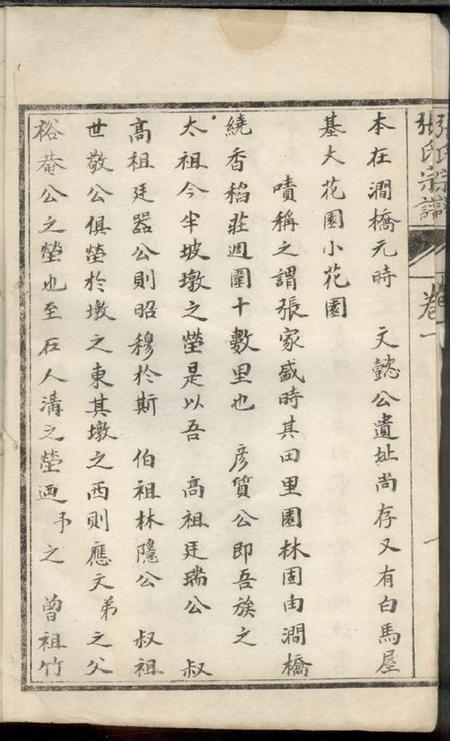 張氏宗譜
卷一
本在澗橋元時　文懿公遺址尚存又有白馬屋
基大花園小花園
嘖稱之謂張家盛時其田里園林固由澗橋
繞香稻莊週圍十數里也　彦質公即吾族之
太祖今半坡墩之塋是以吾　高祖廷瑞公　叔
高祖廷器公則昭穆於斯　伯祖林隱公　叔祖
世敬公俱塋於墩之東其墩之西則應文弟之父
裕菴公之塋也至石人溝之塋迺予之　曾祖竹